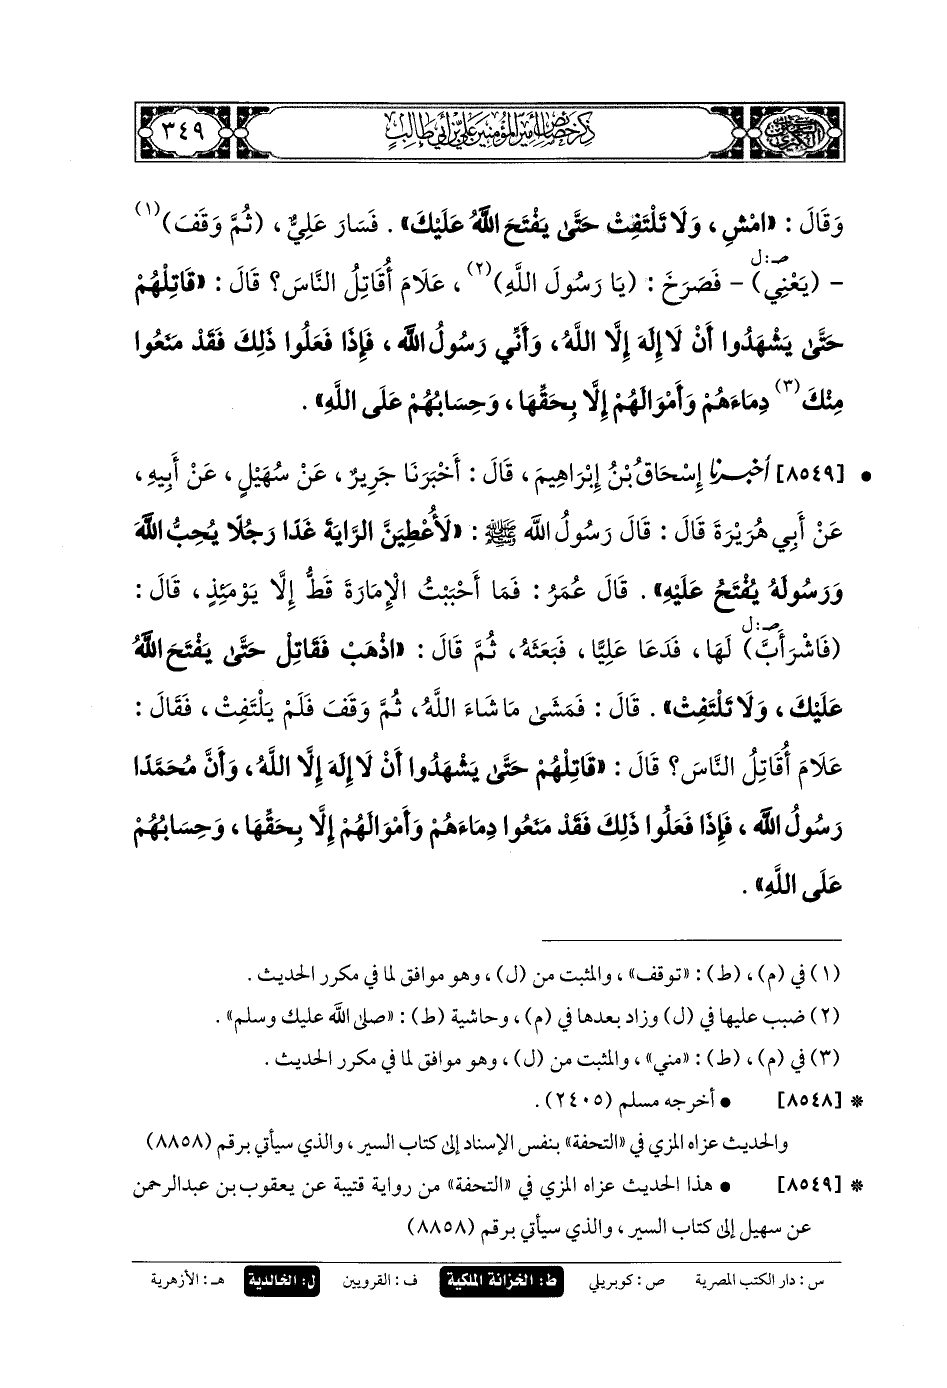 ذكر خصائص أمير المؤمنين علي بن أبي طالب
٣٤٩
وَقَالَ : «امْشِ ، وَلَا تَلْتَفِتْ حَتَّىٰ يَفْتَحَ اللَّهُ عَلَيْكَ» . فَسَارَ عَلِيٌّ ، (ثُمَّ وَقَفَ)(١)
صـ:ل
- (يَعْنِي) - فَصَرَخَ : (يَا رَسُولَ اللَّهِ)(٢) ، عَلَامَ أُقَاتِلُ النَّاسَ؟ قَالَ : «قَاتِلْهُمْ
حَتَّىٰ يَشْهَدُوا أَنْ لَا إِلَهَ إِلَّا اللَّهُ، وَأَنِّي رَسُولُ اللَّه ، فَإِذَا فَعَلُوا ذَلِكَ فَقَدْ مَنَعُوا
مِنْكَ(٣) دِمَاءَهُمْ وَأَمْوَالَهُمْ إِلَّا بِحَقِّهَا ، وَحِسَابُهُمْ عَلَى اللَّهِ» .
• [٨٥٤٩] أخبرنا إِسْحَاقُ بْنُ إِبْرَاهِيمَ، قَالَ : أَخْبَرَنَا جَرِيرٌ ، عَنْ سُهَيْلٍ ، عَنْ أَبِيهِ ،
عَنْ أَبِي هُرَيْرَةَ قَالَ : قَالَ رَسُولُ اللَّه ﷺ : «لَأُعْطِيَنَّ الرَّايَةَ غَدًا رَجُلًا يُحِبُّ اللَّهَ
وَرَسُولَهُ يُفْتَحُ عَلَيْهِ» . قَالَ عُمَرُ : فَمَا أَحْبَبْتُ الْإِمَارَةَ قَطُّ إِلَّا يَوْمَئِذٍ ، قَالَ :
صـ:ل
(فَاشْرَأَبَّ) لَهَا ، فَدَعَا عَلِيًّا ، فَبَعَثَهُ، ثُمَّ قَالَ : «اذْهَبْ فَقَاتِلْ حَتَّىٰ يَفْتَحَ اللَّهُ
عَلَيْكَ ، وَلَا تَلْتَفِتْ» . قَالَ : فَمَشَىٰ مَا شَاءَ اللَّهُ، ثُمَّ وَقَفَ فَلَمْ يَلْتَفِتْ ، فَقَالَ :
عَلَامَ أُقَاتِلُ النَّاسَ؟ قَالَ : «قَاتِلْهُمْ حَتَّىٰ يَشْهَدُوا أَنْ لَا إِلَهَ إِلَّا اللَّهُ، وَأَنَّ مُحَمَّدًا
رَسُولُ اللَّه ، فَإِذَا فَعَلُوا ذَلِكَ فَقَدْ مَنَعُوا دِمَاءَهُمْ وَأَمْوَالَهُمْ إِلَّا بِحَقِّهَا ، وَحِسَابُهُمْ
عَلَى اللَّهِ» .
(١) في (م) ، (ط) : «توقف» ، والمثبت من (ل) ، وهو موافق لما في مكرر الحديث .
(٢) ضبب عليها في (ل) وزاد بعدها في (م) ، وحاشية (ط) : «صلى الله عليك وسلم» .
(٣) في (م) ، (ط) : «مني» ، والمثبت من (ل) ، وهو موافق لما في مكرر الحديث .
* [٨٥٤٨] • أخرجه مسلم (٢٤٠٥) .
والحديث عزاه المزي في «التحفة» بنفس الإسناد إلى كتاب السير ، والذي سيأتي برقم (٨٨٥٨)
* [٨٥٤٩] • هذا الحديث عزاه المزي في «التحفة» من رواية قتيبة عن يعقوب بن عبدالرحمن
عن سهيل إلى كتاب السير ، والذي سيأتي برقم (٨٨٥٨)
س : دار الكتب المصرية ص : كوبريلي ط : الخزانة الملكية ف : القرويين ل : الخالدية هـ : الأزهرية